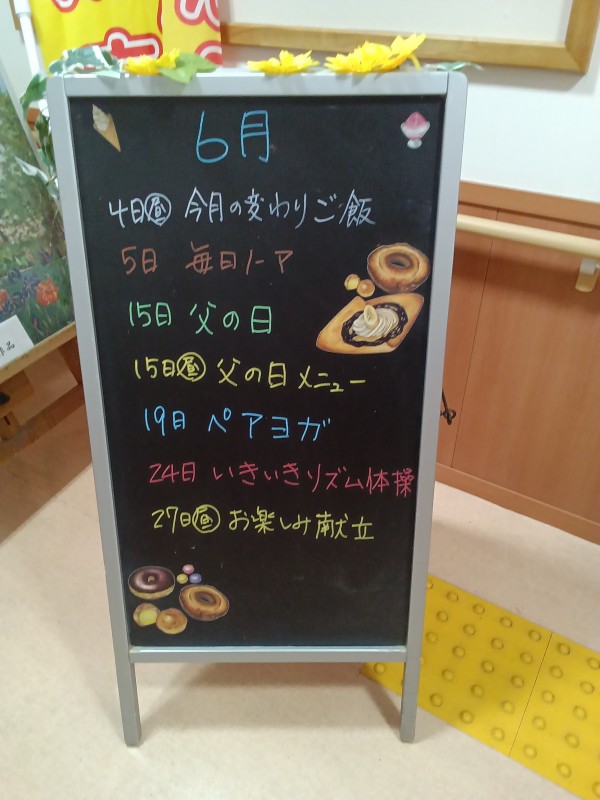 6月
4日㊐昼 今月の変わりご飯
5日 毎日ノーア
15日 父の日
15日昼 父の日メニュー
19日 ペアヨガ
24日 いきいきリズム体操
27日昼 お楽しみ献立
作品